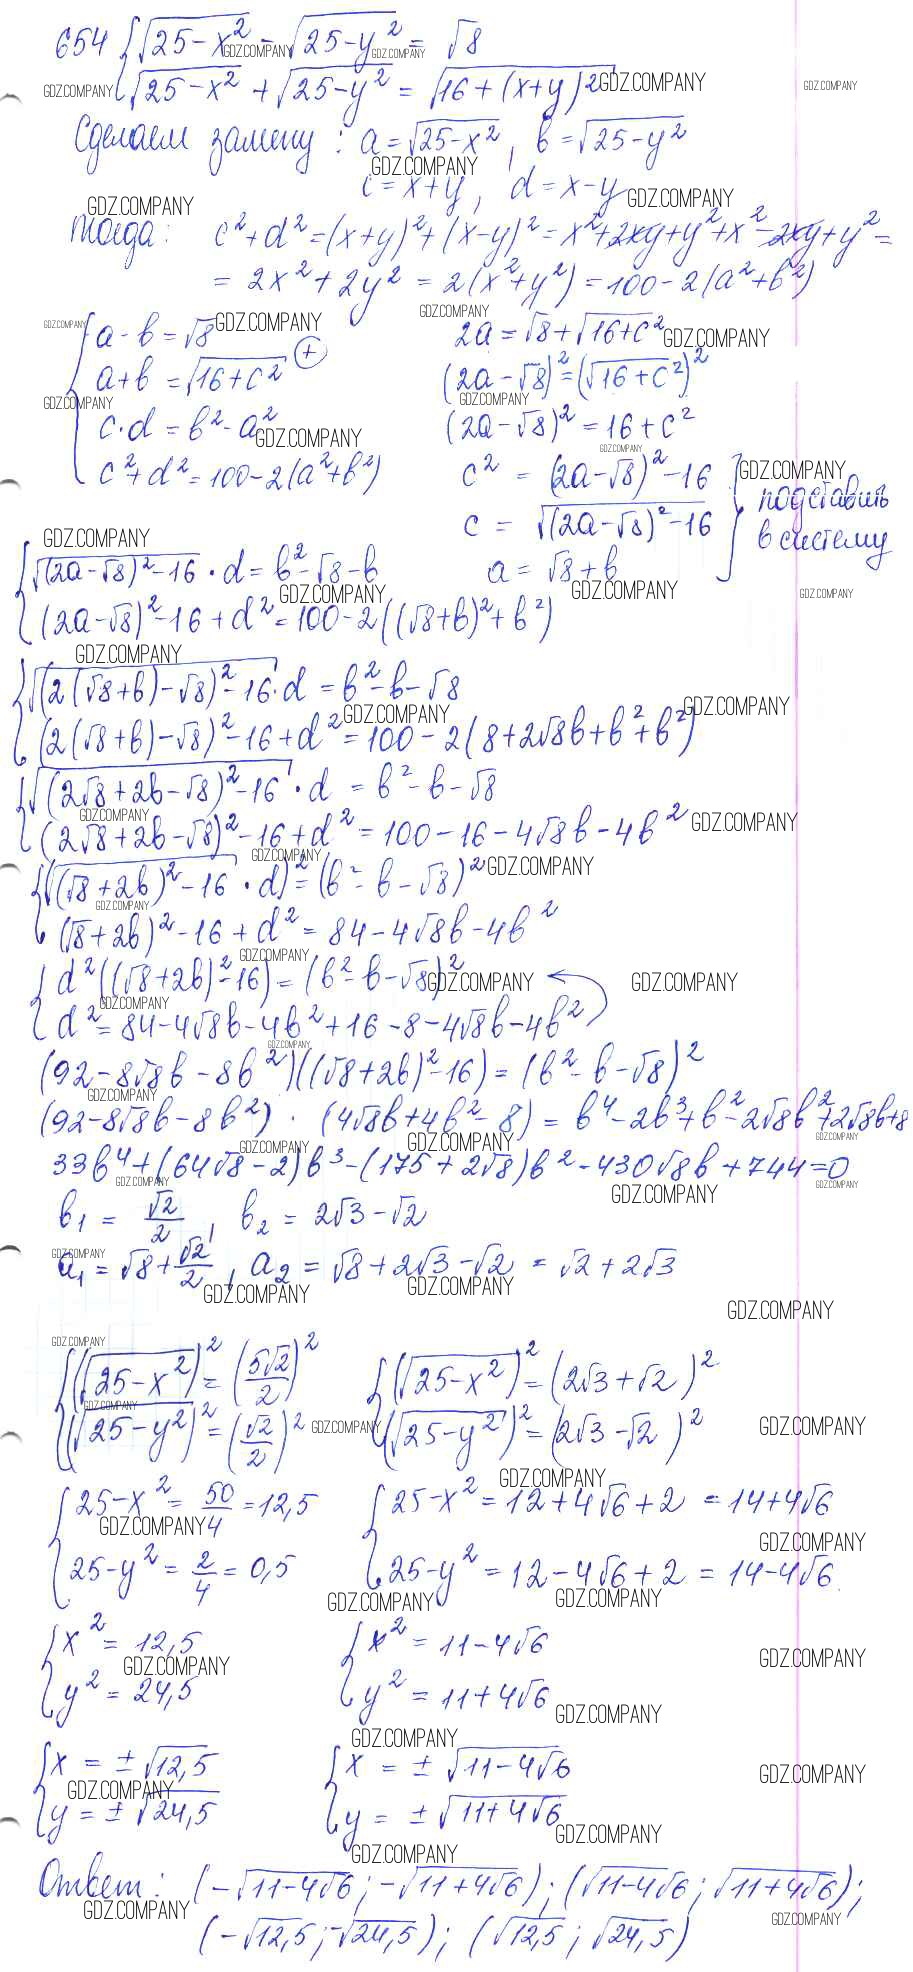 654 { √(25-x²) - √(25-y²) = √8
{ √(25-x²) + √(25-y²) = √(16+(x+y)²)
Сделаем замену: a=√(25-x²), b=√(25-y²)
c=x+y, d=x-y
Тогда: c²+d²=(x+y)²+(x-y)²=x²+2xy+y²+x²-2xy+y²=
= 2x²+2y² = 2(x²+y²)=100-2(a²+b²)
{ a-b=√8
a+b=√(16+c²) (+)
c·d=b²-a²
c²+d²=100-2(a²+b²)
2a=√8+√(16+c²)
(2a-√8)²=(√(16+c²))²
(2a-√8)²=16+c²
c² = (2a-√8)²-16
c = √((2a-√8)²-16)
a = √8+b
} подставить
в систему
{ √((2a-√8)²-16)·d=b²-√8-b
(2a-√8)²-16+d²=100-2((√8+b)²+b²)
{ √((2(√8+b)-√8)²-16)·d=b²-b-√8
(2(√8+b)-√8)²-16+d²=100-2(8+2√8b+b²+b²)
{ √((2√8+2b-√8)²-16)·d = b²-b-√8
(2√8+2b-√8)²-16+d²=100-16-4√8b-4b²
{ (√((√8+2b)²-16)·d)²=(b²-b-√8)²
(√8+2b)²-16+d²=84-4√8b-4b²
{ d²((√8+2b)²-16)=(b²-b-√8)²
d²=84-4√8b-4b²+16-8-4√8b-4b²
(92-8√8b-8b²)((√8+2b)²-16)=(b²-b-√8)²
(92-8√8b-8b²)·(4√8b+4b²-8)=b⁴-2b³+b²-2√8b²+2√8b+8
33b⁴+(64√8-2)b³-(175+2√8)b²-430√8b+744=0
b₁ = √2/2, b₂ = 2√3-√2
a₁=√8+√2/2, a₂=√8+2√3-√2 = √2+2√3
{ (√(25-x²))²=(5√2/2)²
(√(25-y²))²=(√2/2)²
{ (√(25-x²))²=(2√3+√2)²
(√(25-y²))²=(2√3-√2)²
{ 25-x²=50/4=12,5
25-y²=2/4=0,5
{ 25-x²=12+4√6+2 = 14+4√6
25-y²=12-4√6+2 = 14-4√6
{ x²=12,5
y²=24,5
{ x²=11-4√6
y²=11+4√6
{ x=±√12,5
y=±√24,5
{ x = ±√(11-4√6)
y = ±√(11+4√6)
Ответ: (-√(11-4√6); -√(11+4√6)); (√(11-4√6); √(11+4√6));
(-√12,5; -√24,5); (√12,5; √24,5)
GDZ.COMPANY